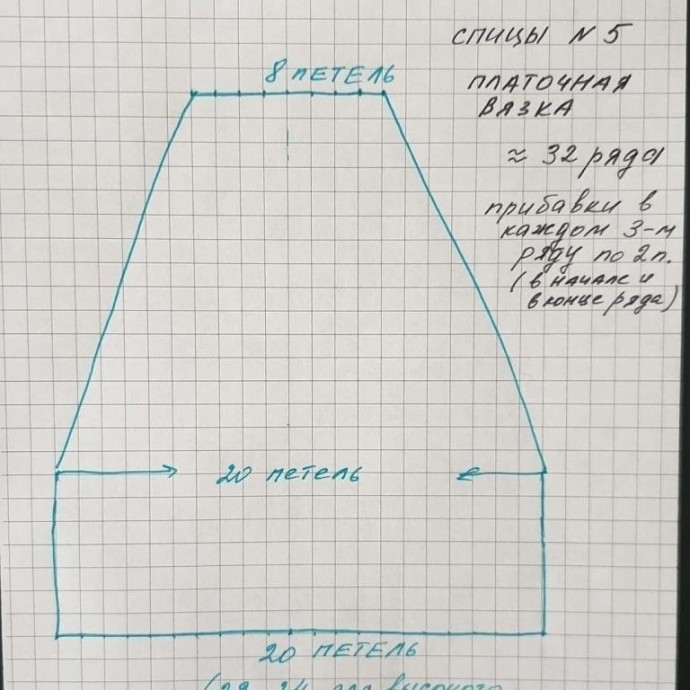 спицы № 5
8 петель
платочная
вязка
≈ 32 ряда
прибавки в
каждом 3-м
ряду по 2п.
(в начале и
в конце ряда)
20 петель
20 петель
для высокого